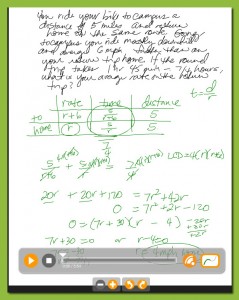 You ride your bike to campus a
distance of 5 miles and return
home on the same route. Going
to campus, you ride mostly downhill
and average 6 mph faster than on
your return trip home. If the round
trip takes 1 hr 45 min - 7/4 hours,
what is your average rate on the return
trip?
t = d/r
rate time distance
to r+6 5/r+6 5
home r 5/r 5
7/4
5/r+6 + 5/r = 7/4 LCD = 4(r)(r+6)
20r + 20r + 120 = 7r² + 42r
0 = 7r² + 2r - 120
0 = (7r + 30)(r - 4)
7r + 30 = 0 or r - 4 = 0